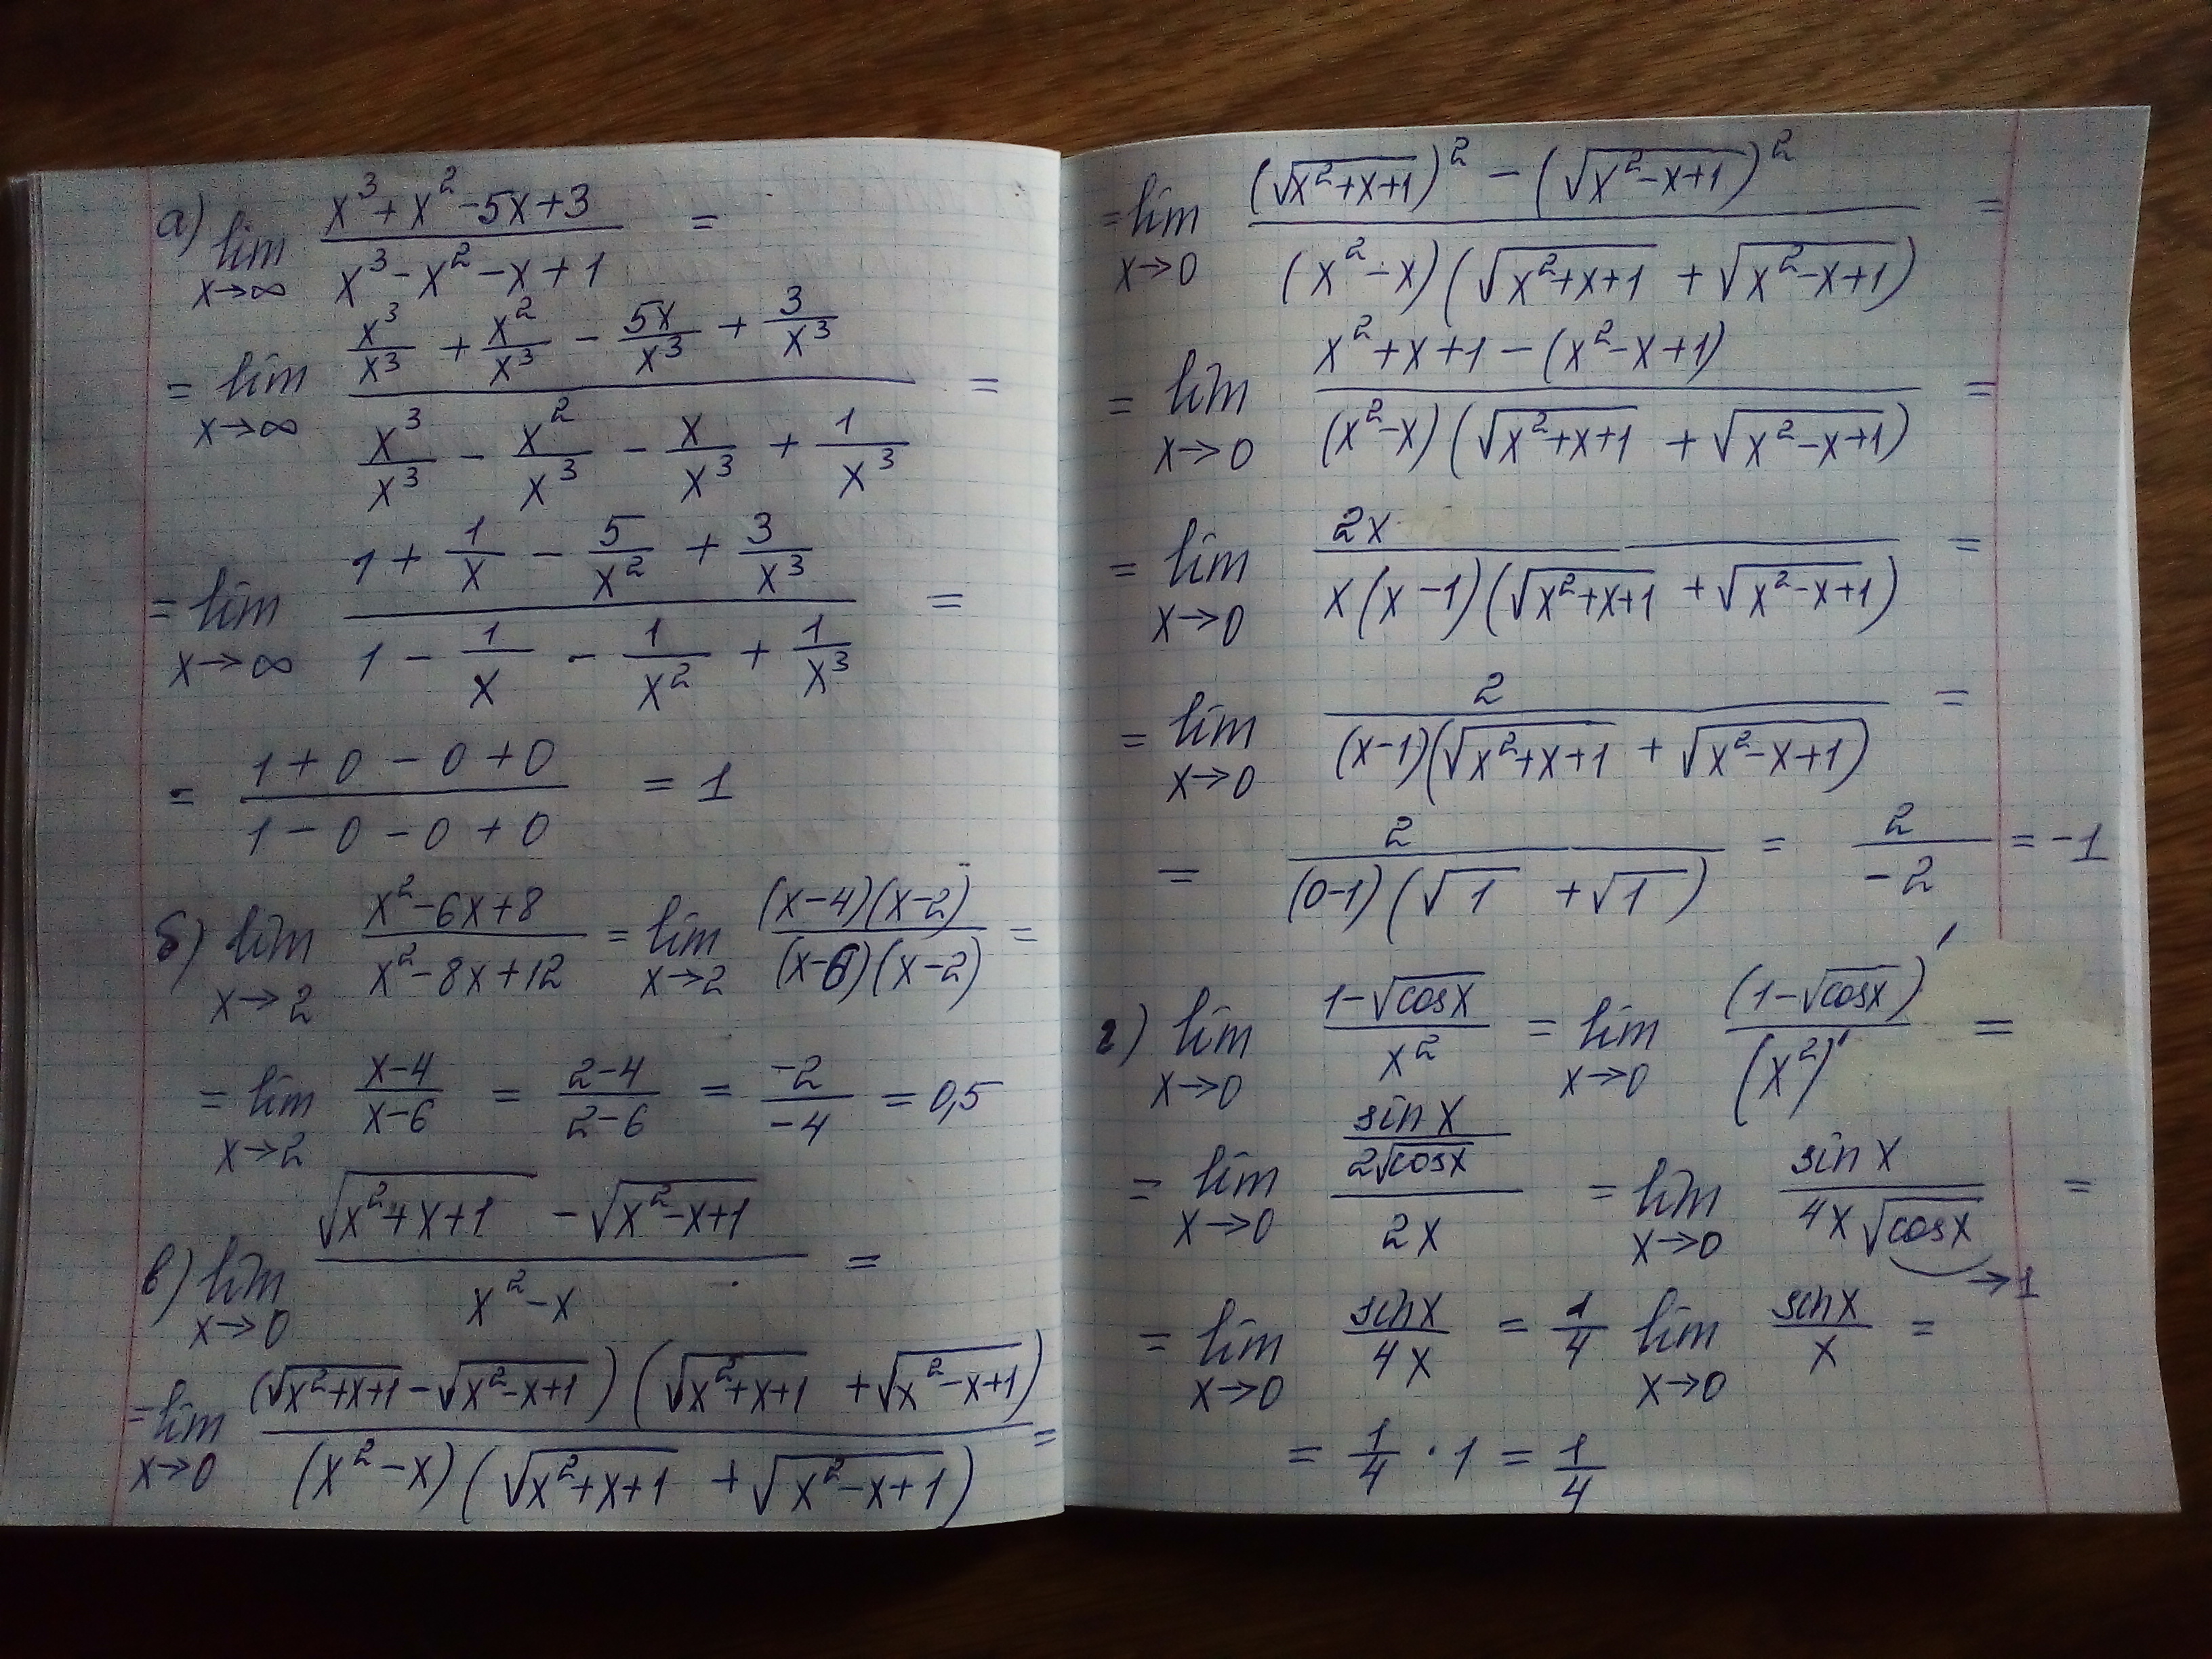 а) lim x→∞ (x³+x²-5x+3)/(x³-x²-x+1) =
= lim x→∞ (x³/x³ + x²/x³ - 5x/x³ + 3/x³)/(x³/x³ - x²/x³ - x/x³ + 1/x³) =
= lim x→∞ (1 + 1/x - 5/x² + 3/x³)/(1 - 1/x - 1/x² + 1/x³) =
= (1+0-0+0)/(1-0-0+0) = 1
б) lim x→2 (x²-6x+8)/(x²-8x+12) = lim x→2 ((x-4)(x-2))/((x-6)(x-2)) =
= lim x→2 (x-4)/(x-6) = (2-4)/(2-6) = -2/-4 = 0,5
в) lim x→0 (√(x²+x+1) - √(x²-x+1))/(x²-x) =
= lim x→0 ((√(x²+x+1) - √(x²-x+1))(√(x²+x+1) + √(x²-x+1)))/((x²-x)(√(x²+x+1) + √(x²-x+1))) =
= lim x→0 ((√(x²+x+1))² - (√(x²-x+1))²)/((x²-x)(√(x²+x+1) + √(x²-x+1))) =
= lim x→0 (x²+x+1-(x²-x+1))/((x²-x)(√(x²+x+1) + √(x²-x+1))) =
= lim x→0 2x/(x(x-1)(√(x²+x+1) + √(x²-x+1))) =
= lim x→0 2/((x-1)(√(x²+x+1) + √(x²-x+1))) =
= 2/((0-1)(√1 + √1)) = 2/-2 = -1
г) lim x→0 (1-√cosx)/x² = lim x→0 (1-√cosx)'/(x²)' =
= lim x→0 (sinx/(2√cosx))/2x = lim x→0 sinx/(4x√cosx) =
→1
= lim x→0 sinx/4x = 1/4 lim x→0 sinx/x =
= 1/4 · 1 = 1/4